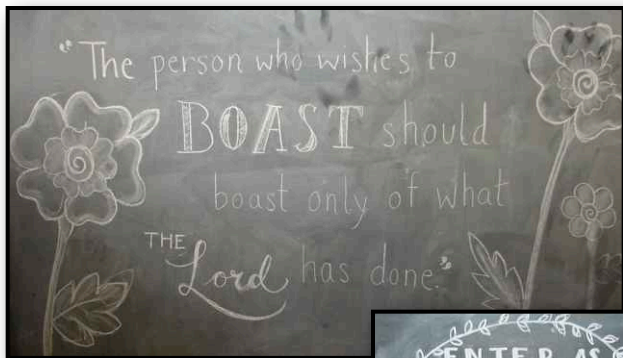 "The person who wishes to
BOAST should
boast only of what
THE Lord has done."
ENTER AS